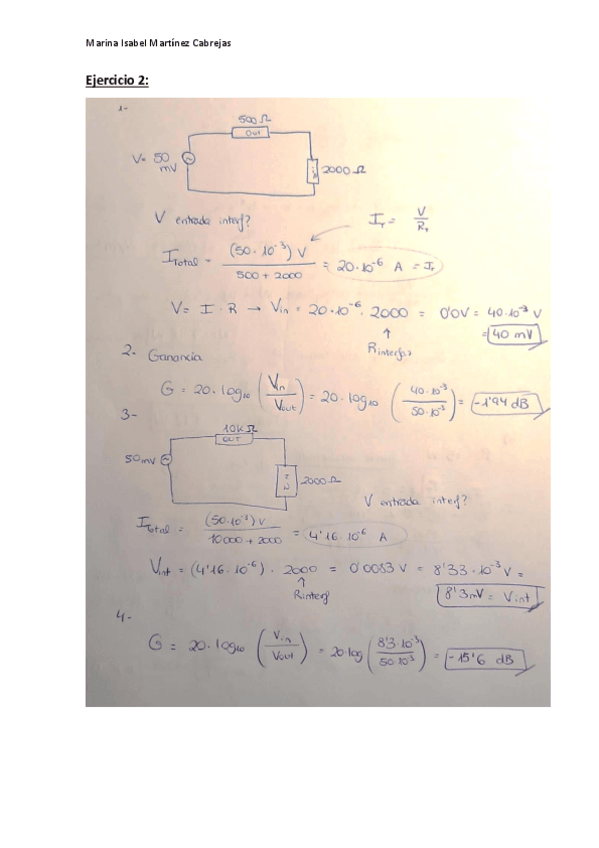 Marina Isabel Martínez Cabrejas
Ejercicio 2:
1-
500 Ω
OUT
V= 50 mV
2000 Ω
V entrada interf?
I_T = V / R_T
I_Total = (50·10^-3) V / 500 + 2000 = 20·10^-6 A = I_T
V = I · R → Vin = 20·10^-6 · 2000 = 0'0V = 40·10^-3 V
= 40 mV
↑
Rinterfaz
2- Ganancia
G = 20·log10 (Vin / Vout) = 20·log10 (40·10^-3 / 50·10^-3) = -1'94 dB
3-
10K Ω
OUT
50 mV
IN
2000 Ω
V entrada interf?
I_Total = (50·10^-3) V / 10000 + 2000 = 4'16·10^-6 A
Vint = (4'16·10^-6) · 2000 = 0'0083 V = 8'33·10^-3 V =
↑
Rinterf
8'3mV = Vint
4-
G = 20·log10 (Vin / Vout) = 20 log (8'3·10^-3 / 50·10^-3) = -15'6 dB